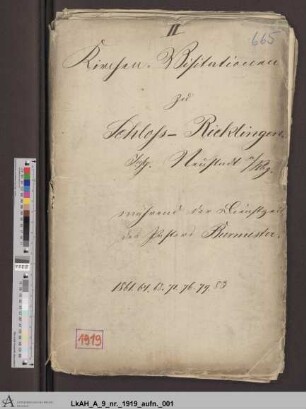 II
665
Kirchen-Visitationen
zu
Schloß-Ricklingen
Insp. Neustadt a/Rbg.
während der Dienstzeit
des Pastors Burmester.
1919
LkAH_A_9_nr._1919_aufn._001